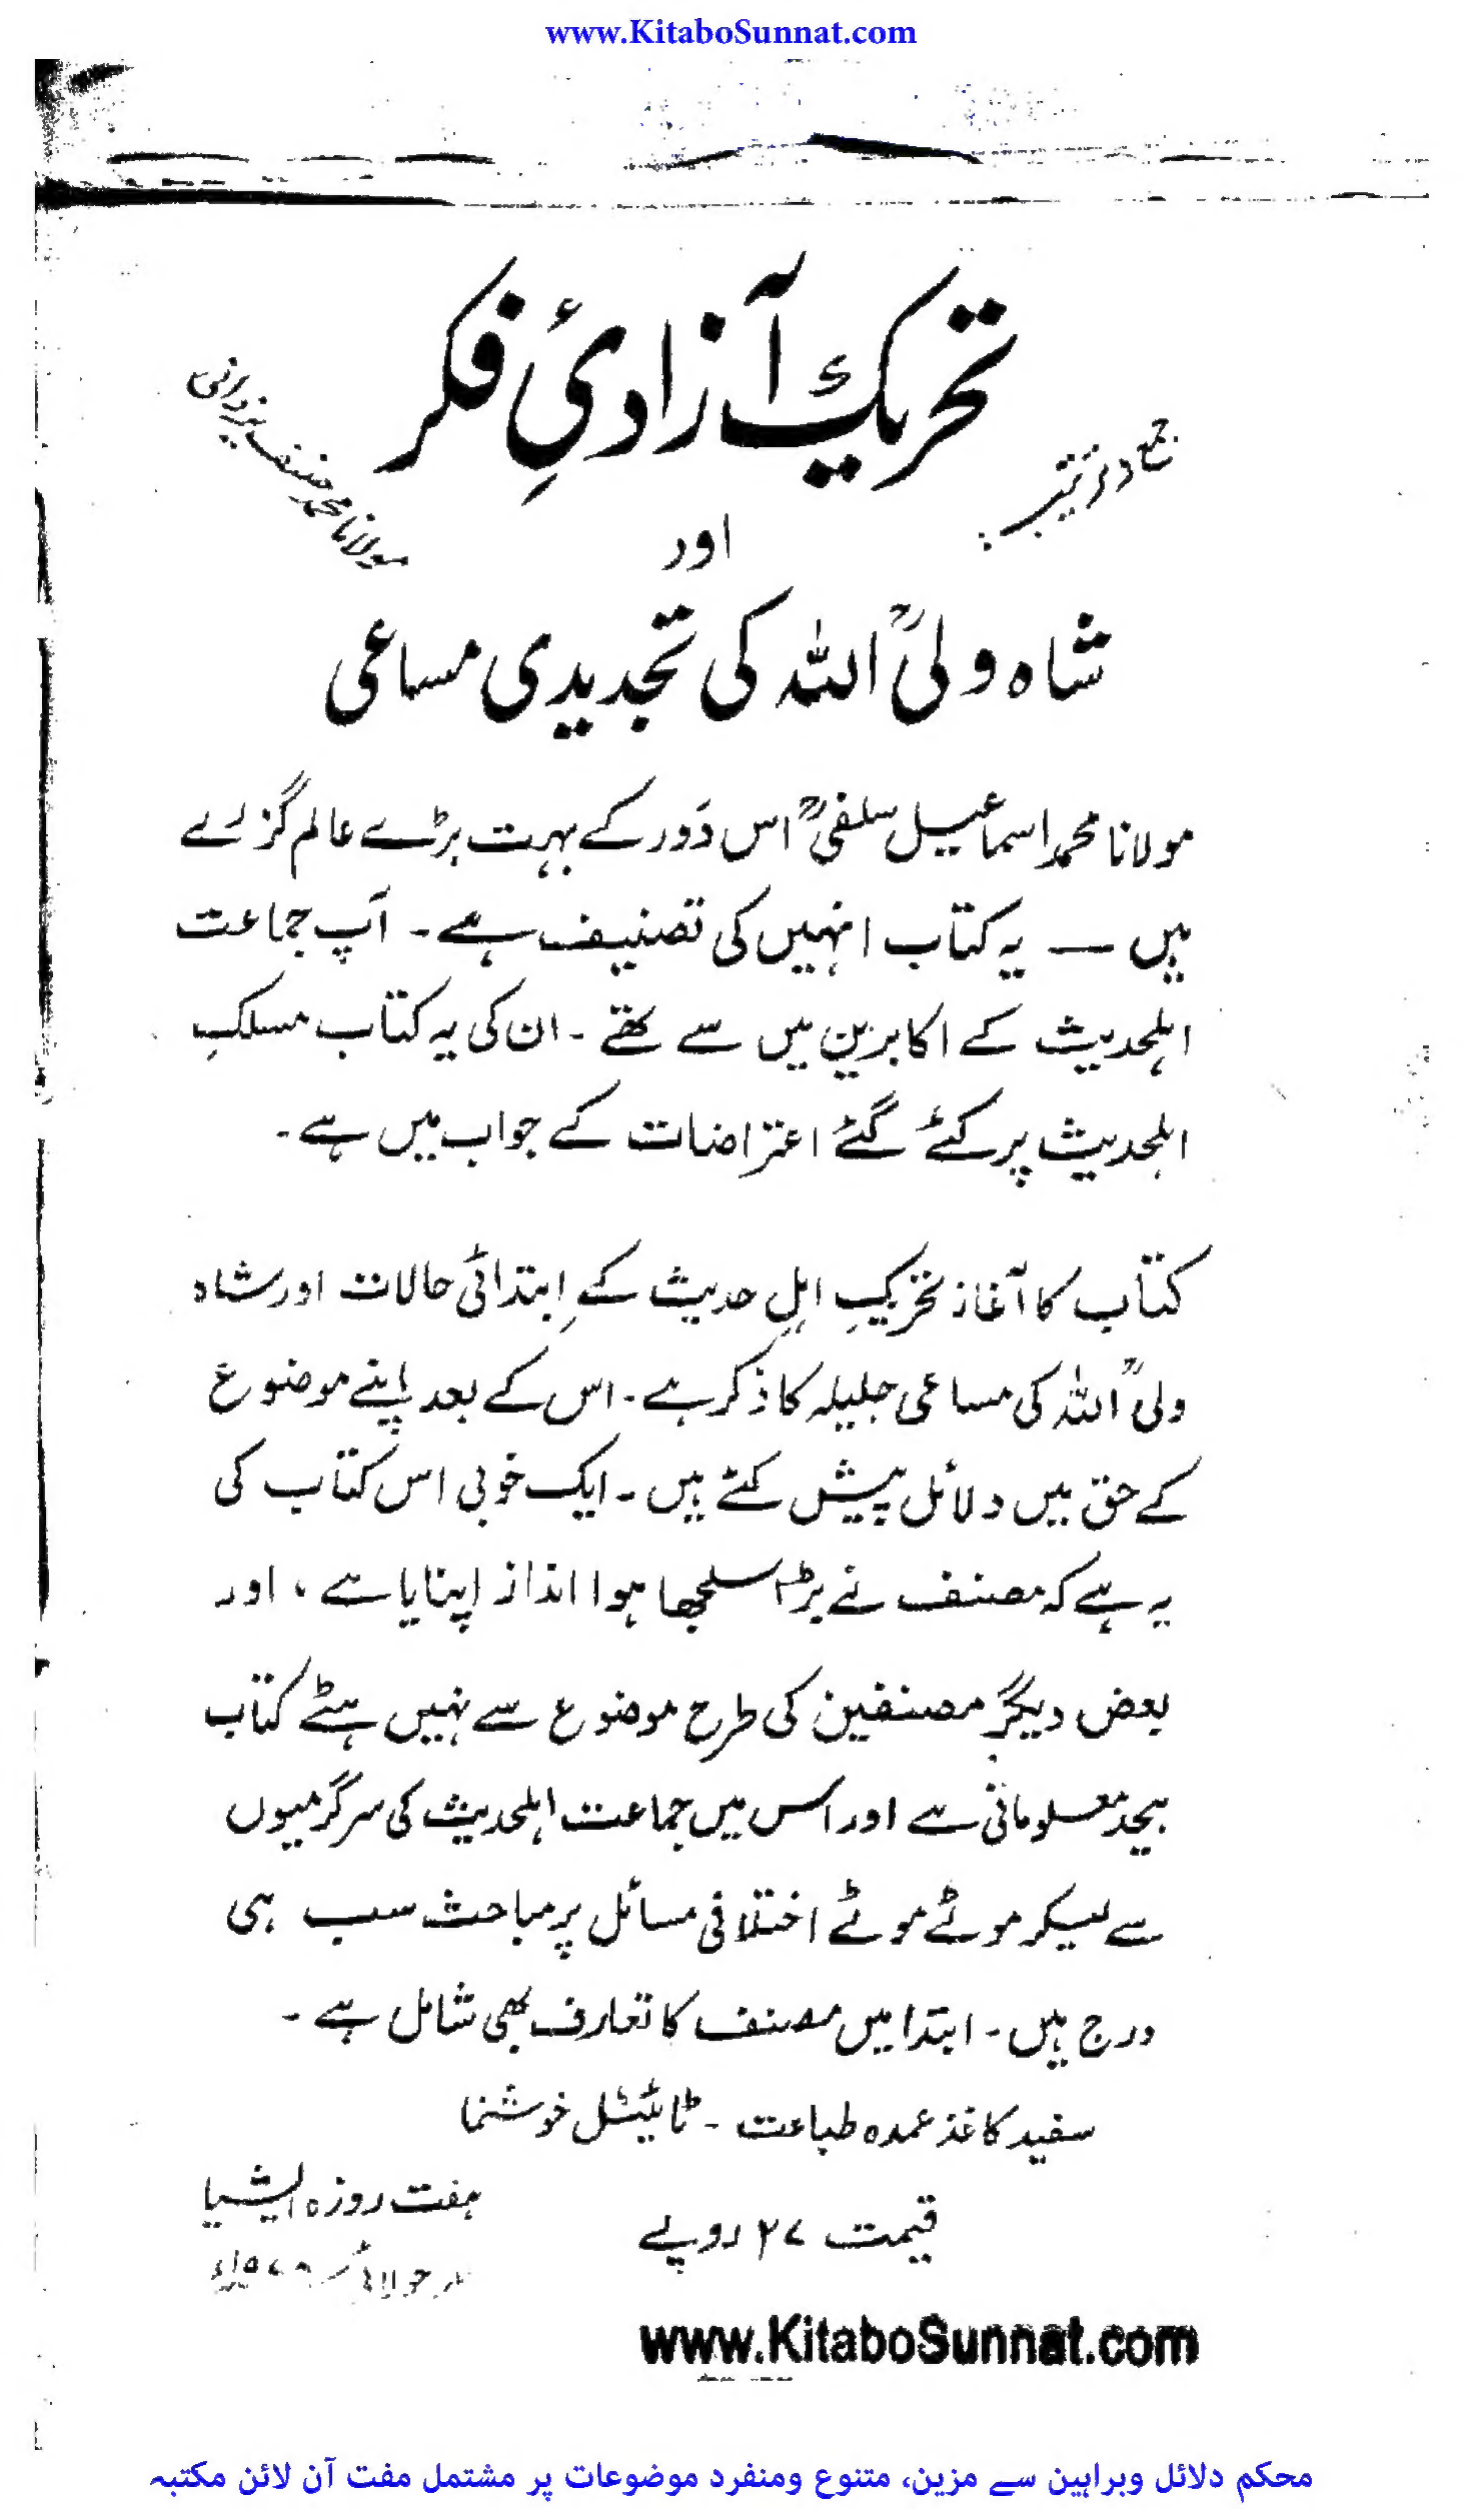 www.KitaboSunnat.com
تحریک آزادئِ فکر
جمع و ترتیب:
مولانا محمد حنیف یزدانی
اور
شاہ ولیؒ اللہ کی تجدیدی مساعی
مولانا محمد اسماعیل سلفیؒ اس دَور کے بہت بڑے عالم گزرے
ہیں — یہ کتاب انہیں کی تصنیف ہے۔ آپ جماعت
اہلحدیث کے اکابرین میں سے تھے۔ ان کی یہ کتاب مسلکِ
اہلحدیث پر کئے گئے اعتراضات کے جواب میں ہے۔
کتاب کا آغاز تحریکِ اہلِ حدیث کے اِبتدائی حالات اور شاہ
ولیؒ اللہ کی مساعی جلیلہ کا ذکر ہے۔ اس کے بعد اپنے موضوع
کے حق میں دلائل پیش کئے ہیں۔ ایک خوبی اس کتاب کی
یہ ہے کہ مصنف نے بڑا سلجھا ہوا انداز اپنایا ہے، اور
بعض دیگر مصنفین کی طرح موضوع سے نہیں ہٹے کتاب
بیحد معلوماتی ہے اور اس میں جماعت اہلحدیث کی سرگرمیوں
سے لیکر موٹے موٹے اختلافی مسائل پر مباحث سب ہی
درج ہیں۔ ابتدا میں مصنف کا تعارف بھی شامل ہے۔
سفید کاغذ عمدہ طباعت۔ ٹائیٹل خوشنما
قیمت ۲۷ روپے
ہفت روزہ ایشیا
جولائی
www.KitaboSunnat.com
محکم دلائل وبراہین سے مزین، متنوع ومنفرد موضوعات پر مشتمل مفت آن لائن مکتبہ